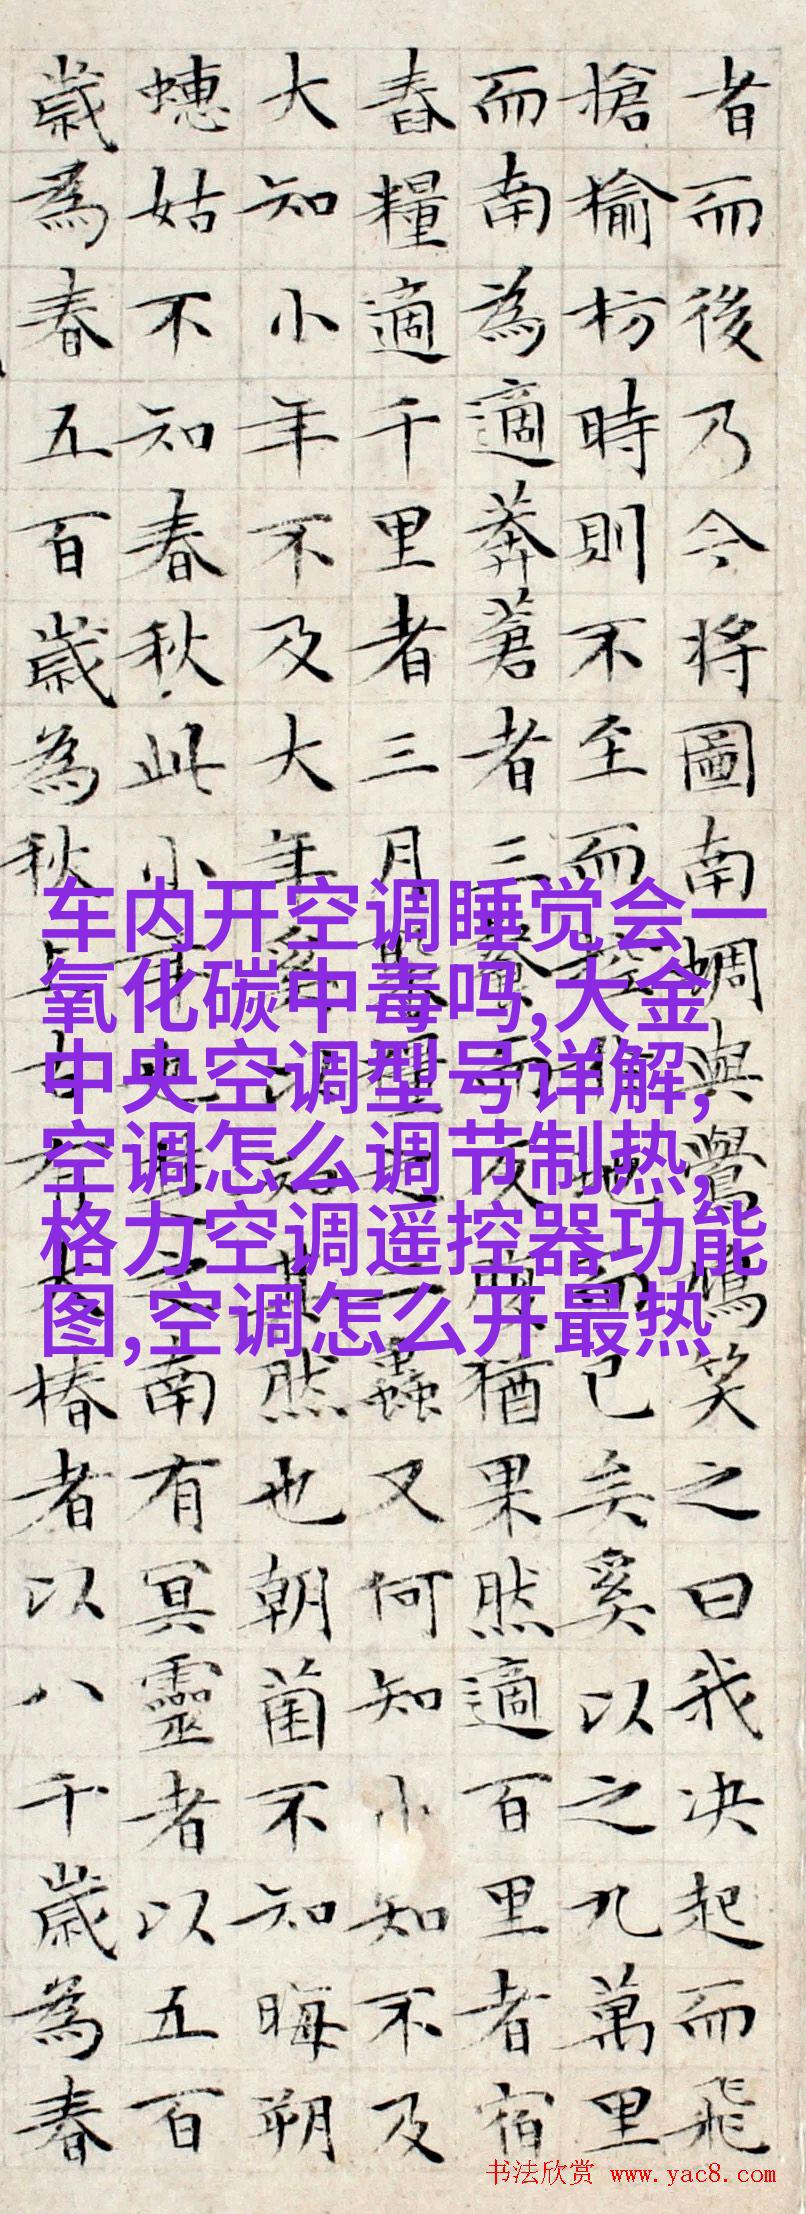 者而後乃今将圖南蜩與鷽鳩笑之曰我决起而飛
搶榆枋時則不至而控於地而已矣奚以之九萬里
而南為適莽蒼者三飡而反腹猶果然適百里者宿
舂糧適千里者三月聚糧之二蟲又何知小知不及
大知小年不及大年奚以知其然也朝菌不知晦朔
蟪姑不知春秋此小年也楚之南有冥靈者以五百
歲為春五百歲為秋上古有大椿者以八千歲為春
车内开空调睡觉会一
氧化碳中毒吗,大金
中央空调型号详解,
空调怎么调节制热,
格力空调遥控器功能
图,空调怎么开最热
书法欣赏 www.yac8.com